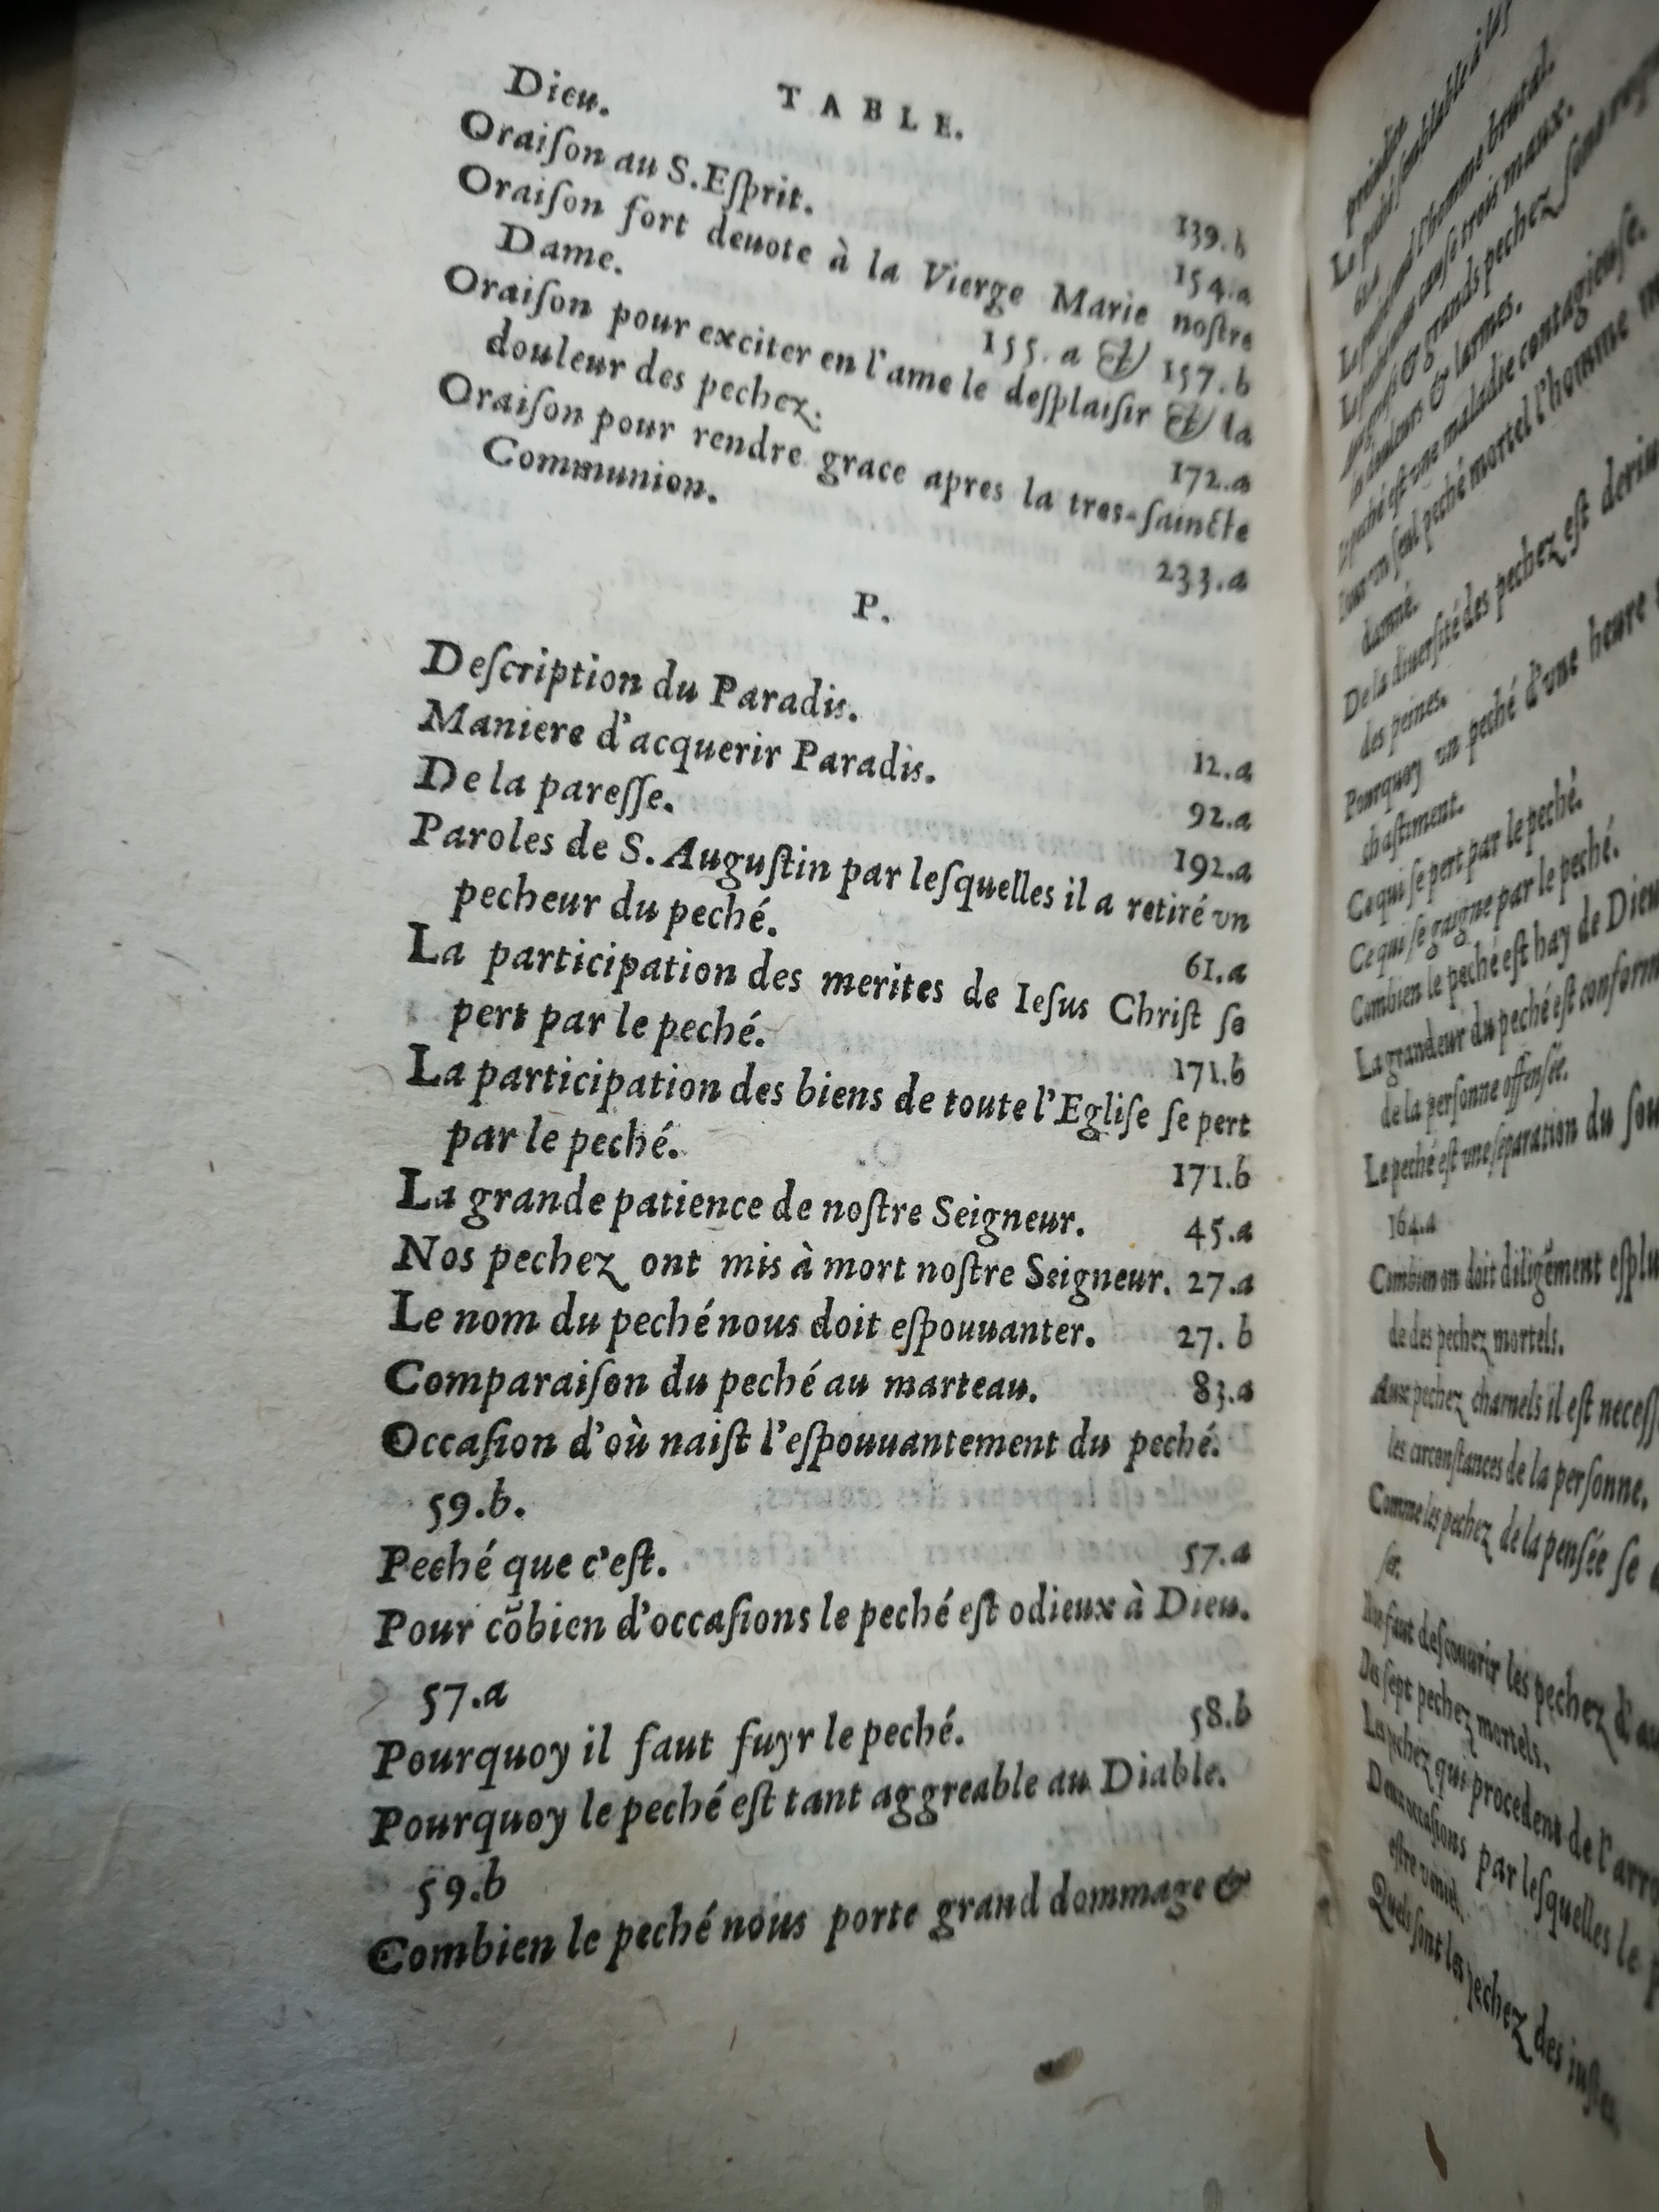 TABLE.
Dieu. 139.b
Oraiſon au S. Eſprit. 154.a
Oraiſon fort deuote à la Vierge Marie noſtre
Dame. 155.a & 157.b
Oraiſon pour exciter en l'ame le deſplaiſir & la
douleur des pechez. 172.a
Oraiſon pour rendre grace apres la tres-ſaincte
Communion. 233.a
P.
Deſcription du Paradis. 12.a
Maniere d'acquerir Paradis. 92.a
De la pareſſe. 192.a
Paroles de S. Auguſtin par leſquelles il a retiré vn
pecheur du peché. 61.a
La participation des merites de Ieſus Chriſt ſe
pert par le peché. 171.b
La participation des biens de toute l'Egliſe ſe pert
par le peché. 171.b
La grande patience de noſtre Seigneur. 45.a
Nos pechez ont mis à mort noſtre Seigneur. 27.a
Le nom du peché nous doit eſpouuanter. 27. b
Comparaiſon du peché au marteau. 83.a
Occaſion d'où naiſt l'eſpouuantement du peché.
59.b.
Peché que c'eſt. 57.a
Pour cõbien d'occaſions le peché eſt odieux à Dieu.
57.a
Pourquoy il faut fuyr le peché. 58.b
Pourquoy le peché eſt tant aggreable au Diable.
59.b
Combien le peché nous porte grand dommage &
preiudice
Le peché ſemblable à
l'homme brutal.
cauſe trois maux.
& grands pechez ſont
douleurs & larmes.
peché eſt vne maladie contagieuſe.
vn ſeul peché mortel l'homme
damné.
De la diuerſité des pechez eſt
des peines.
Pourquoy vn peché d'vne heure
chaſtiment.
Ce qui ſe pert par le peché.
Ce qui ſe gaigne par le peché.
Combien le peché eſt hay de Dieu
La grandeur du peché eſt
de la perſonne offenſée.
Le peché eſt vne ſeparation du
164.a
Combien on doit diligẽment
de des pechez mortels.
Aux pechez charnels il eſt
les circonſtances de la perſonne.
Comme les pechez de la penſée ſe
ſer.
faut deſcouurir les pechez
Des ſept pechez mortels.
Les pechez qui procedent de
Deux occaſions par leſquelles le
eſtre veniel.
Quels ſont les pechez des iuſtes